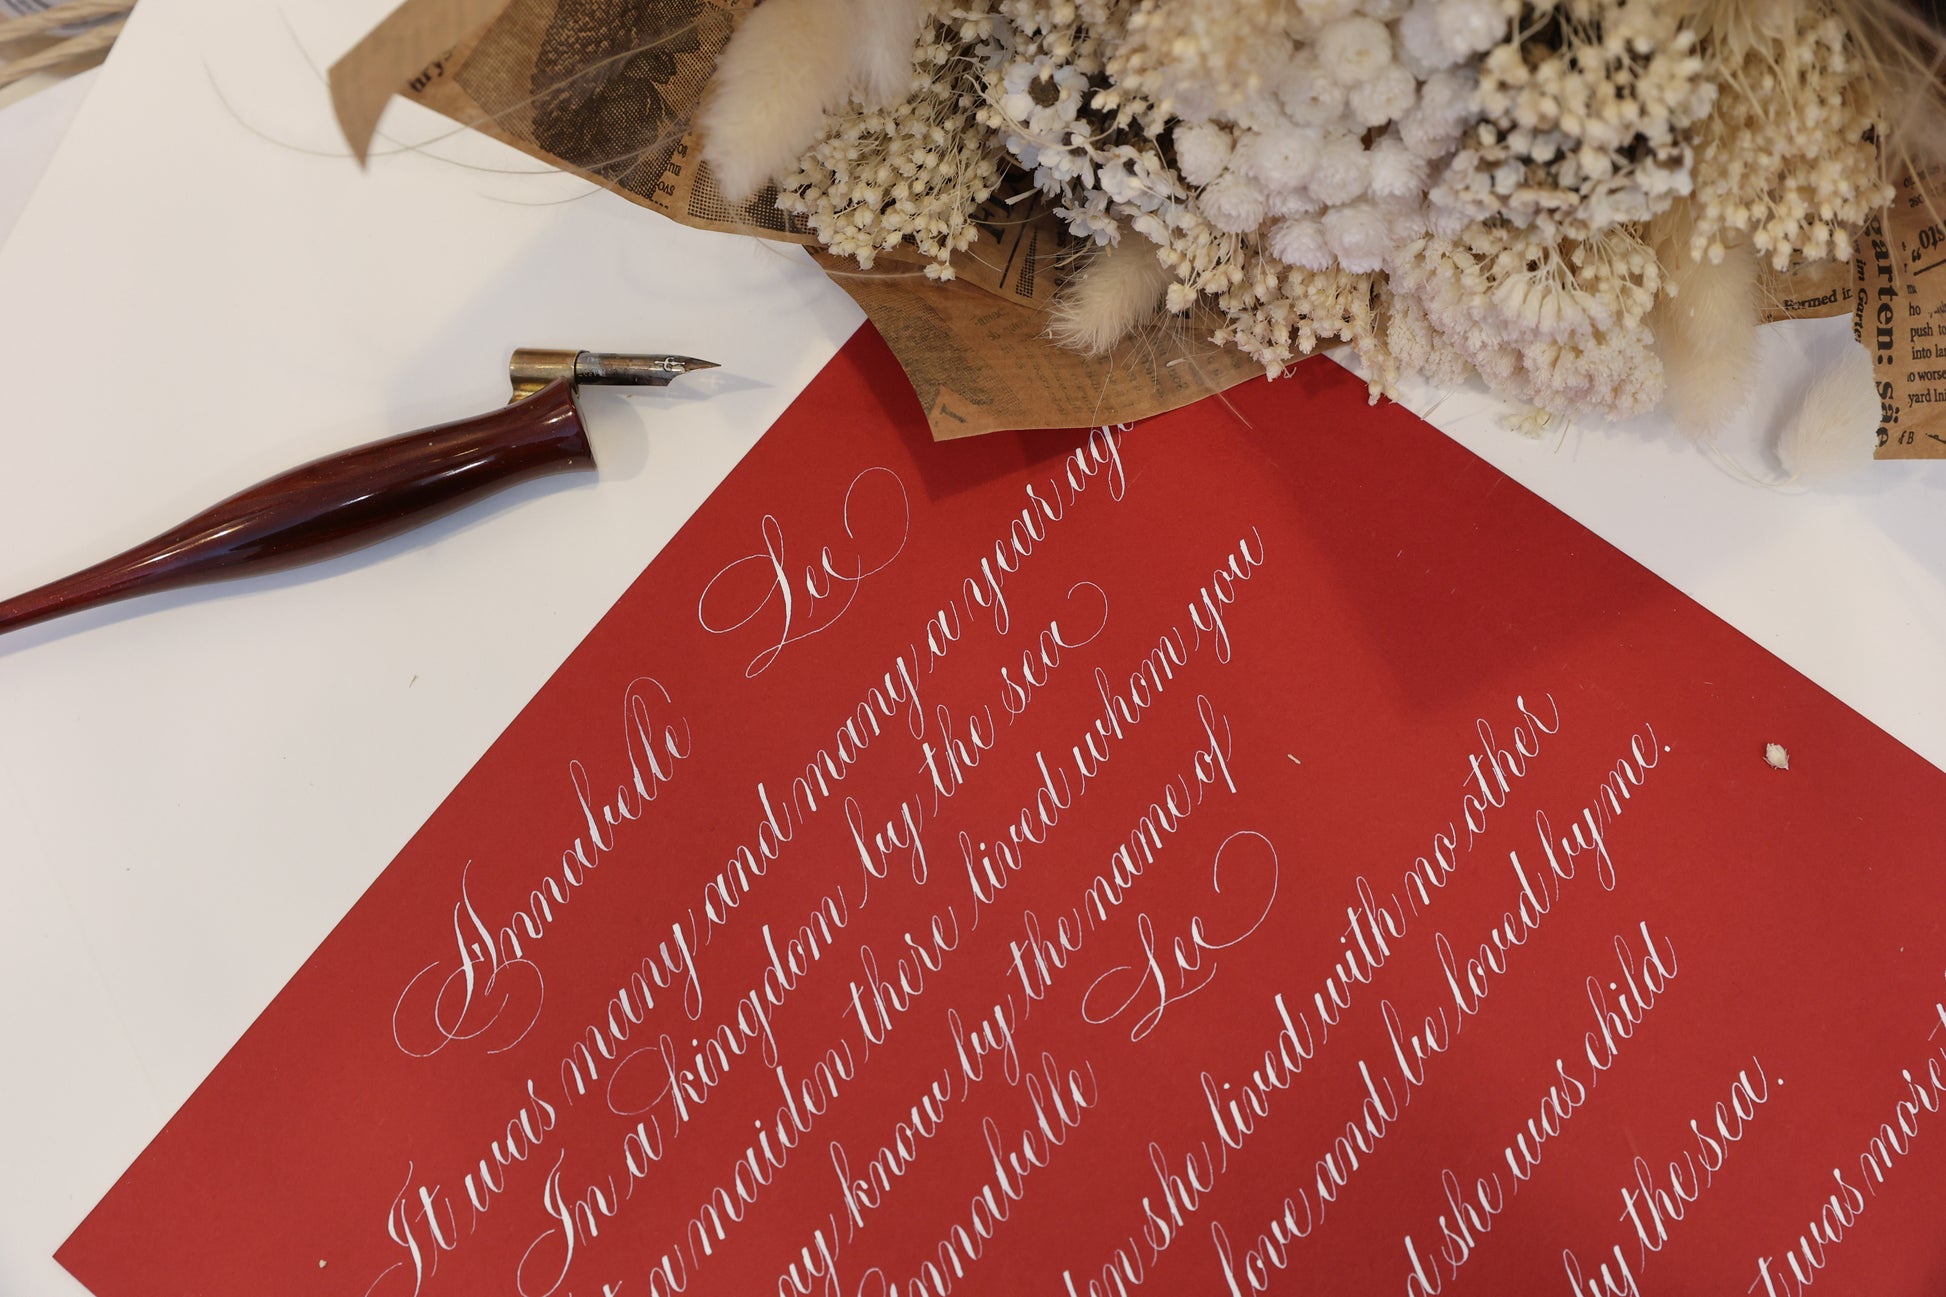 Annabelle Lee
It was many and many a year ag
In a kingdom by the sea
t a maiden there lived whom you
ay know by the name of
nnabelle Lee
en she lived with no other
love and be loved by me.
d she was child
by the sea.
t was more
arten: sä
Formed in
push to
into lar
o worse
yard Ini